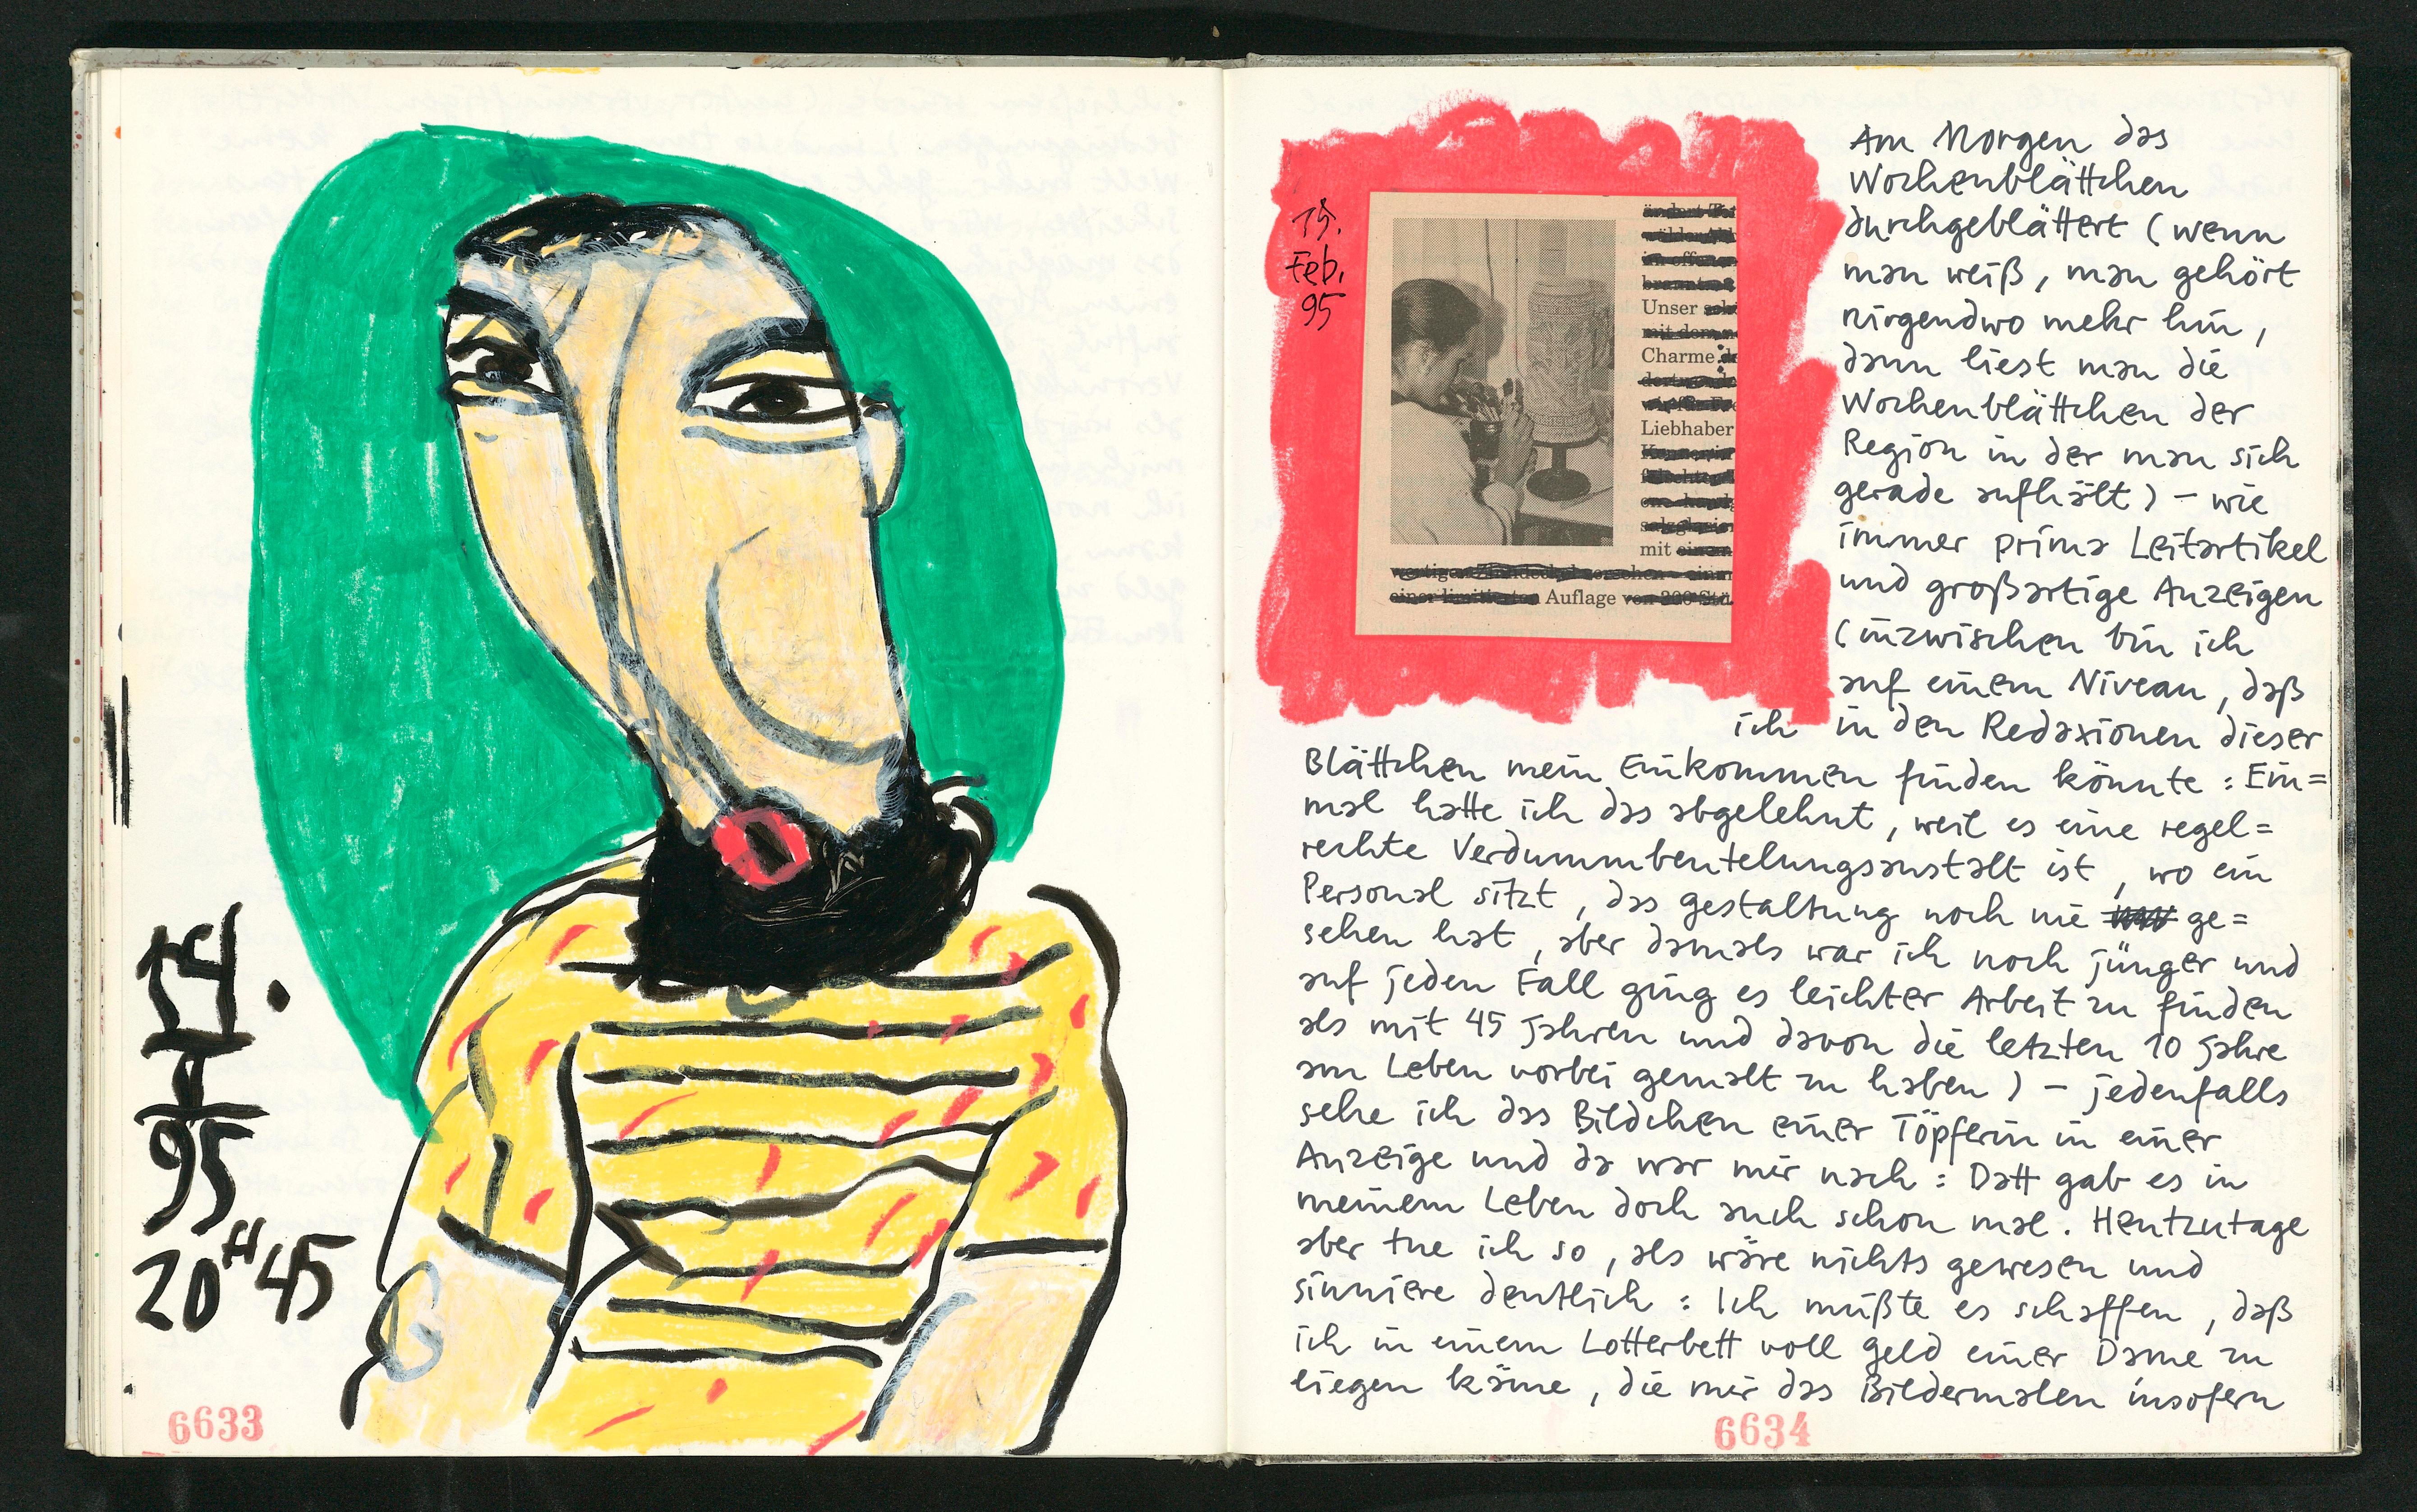 14.
II
95
20H45
6633
15.
Feb.
95
Unser
Charme
Liebhaber
mit
Auflage
Am Morgen das
Wochenblättchen
durchgeblättert (wenn
man weiß, man gehört
nirgendwo mehr hin,
dann liest man die
Wochenblättchen der
Region in der man sich
gerade aufhält) – wie
immer prima Leitartikel
und großartige Anzeigen
(inzwischen bin ich
auf einem Niveau, daß
ich in den Redaxionen dieser
Blättchen mein Einkommen finden könnte: Ein=
mal hatte ich das abgelehnt, weil es eine regel=
rechte Verdummbeutelungsanstalt ist, wo ein
Personal sitzt, das Gestaltung noch nie ge=
sehen hat, aber damals war ich noch jünger und
auf jeden Fall ging es leichter Arbeit zu finden
als mit 45 Jahren und davon die letzten 10 Jahre
am Leben vorbei gemalt zu haben) – jedenfalls
sehe ich das Bildchen einer Töpferin in einer
Anzeige und da war mir nach: Datt gab es in
meinem Leben doch auch schon mal. Heutzutage
aber tue ich so, als wäre nichts gewesen und
sinniere deutlich: Ich müßte es schaffen, daß
ich in einem Lotterbett voll Geld einer Dame zu
liegen käme, die mir das Bildermalen insofern
6634